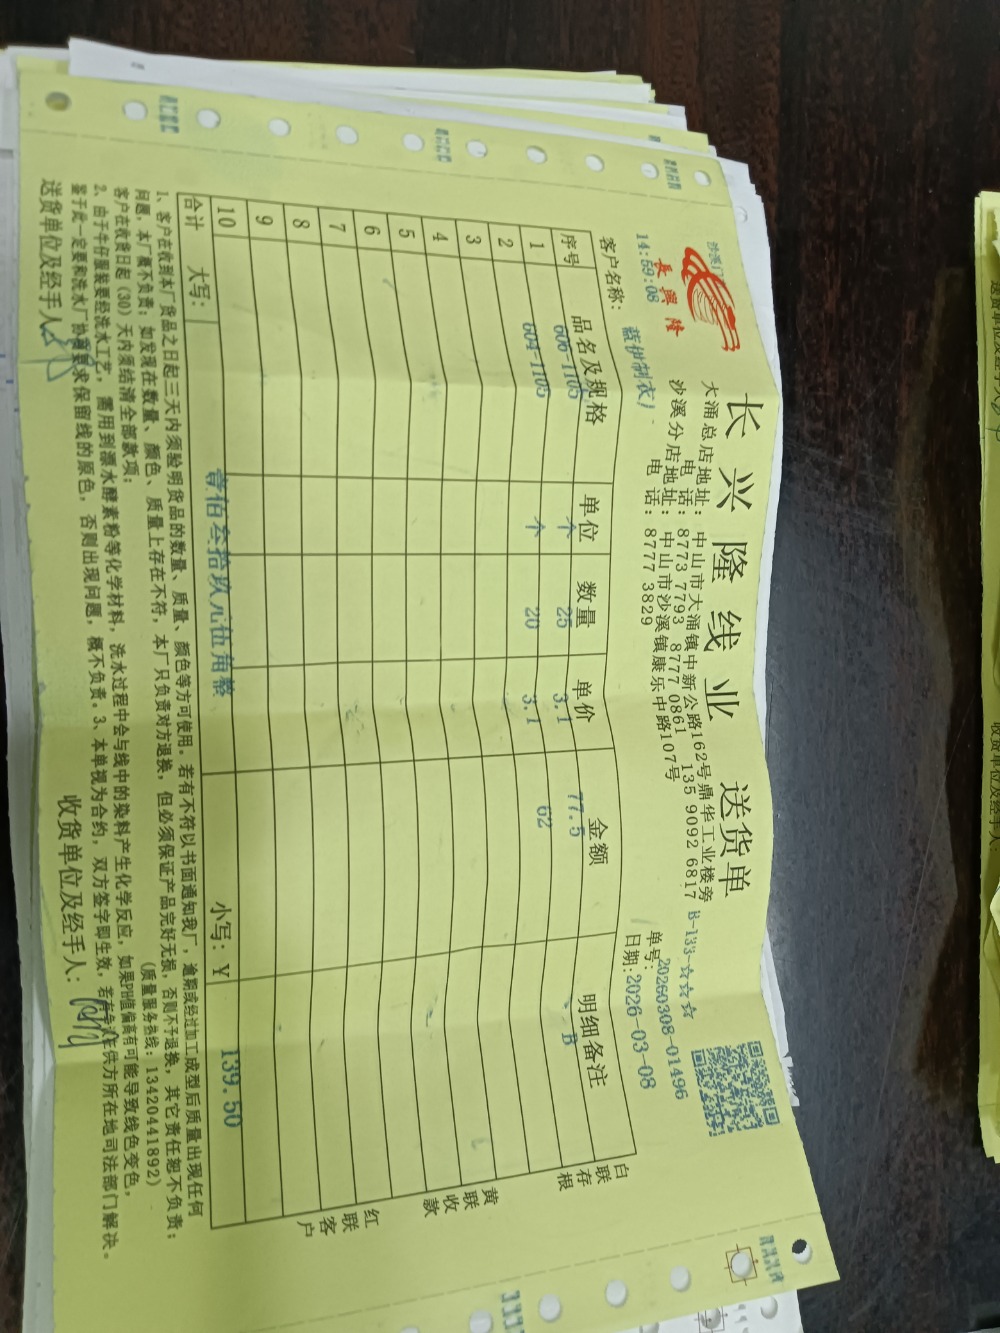 沙溪门
長興隆
长兴隆线业 送货单
大涌总店地址: 中山市大涌镇中新公路162号鼎华工业楼旁
电话: 8773 7793 8777 0861 135 9092 6817
B-133-☆☆☆
沙溪分店地址: 中山市沙溪镇康乐中路107号
电话: 8777 3829
单号: 20260308-01496
14:59:08
日期: 2026-03-08
客户名称: 蓝
序号 品名及规格 单位 数量 单价 金额 明细备注
606-1105 个 25 3.1 77.5 B
1 604-1105 个 20 3.1 62
2
3
4
5
6
7
8
9
10
合计 大写: 壹佰叁拾玖元伍角整 小写: ¥ 139.50
白联存根
黄联收款
红联客户
1、客户在收到本厂货品之日起三天内须验明货品的数量、质量、颜色等方可使用。若有不符以书面通知我厂,逾期或经过加工成型后质量出现任何
问题,本厂概不负责;如发现在数量、颜色、质量上存在不符,本厂只负责对方退换,但必须保证产品完好无损,否则不予退换,其它责任恕不负责;
客户在收货日起(30)天内须结清全部款项; (质量服务热线: 13420441892)
2、由于牛仔服装要经洗水工艺,需用到漂水酵素粉等化学材料,洗水过程中会与线中的染料产生化学反应,如果PH值偏高有可能导致线色变色,
鉴于此一定要和洗水厂协调要求保留线的原色,否则出现问题,概不负责。3、本单视为合约,双方签字即生效,若有争议在供方所在地司法部门解决。
送货单位及经手人: 收货单位及经手人: